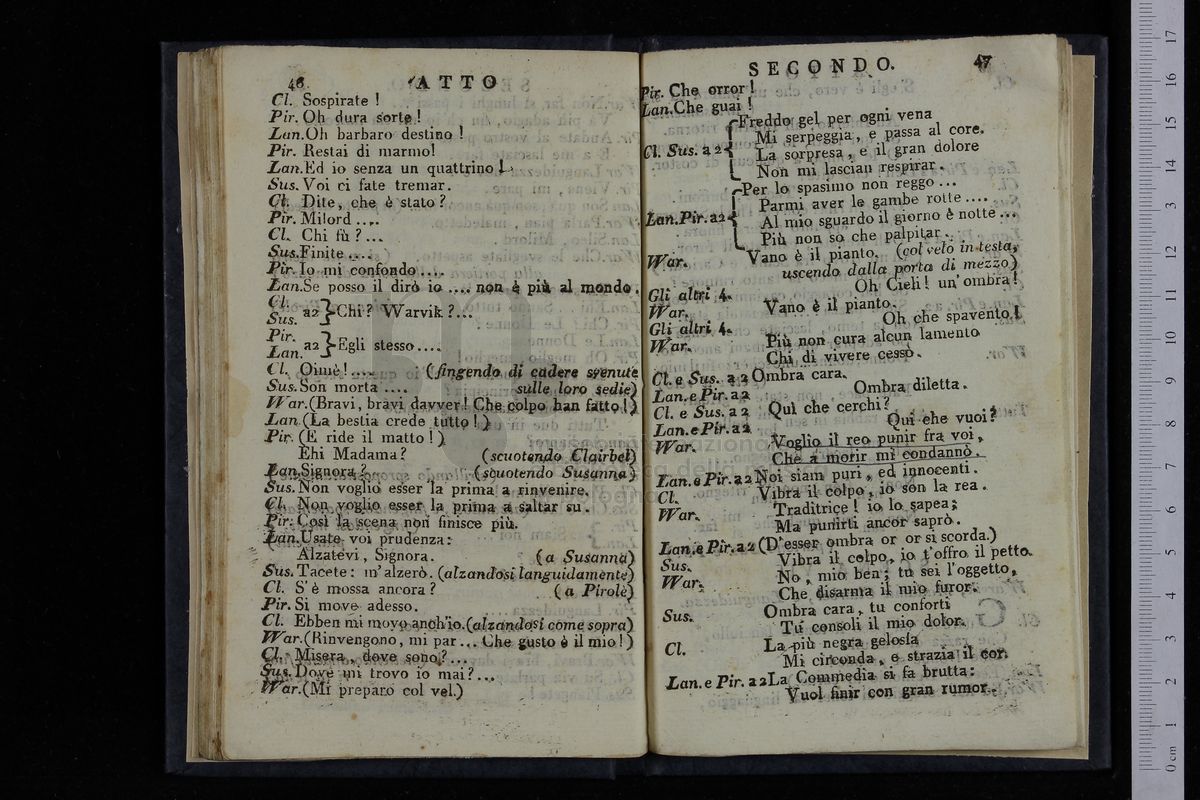 46 ATTO
Cl. Sospirate !
Pir. Oh dura sorte !
Lan. Oh barbaro destino !
Pir. Restai di marmo!
Lan. Ed io senza un quattrino !
Sus. Voi ci fate tremar.
Cl. Dite, che è stato ?
Pir. Milord ....
Cl. Chi fù ?...
Sus. Finite ....
Pir. Io mi confondo ....
Lan. Se posso il dirò io .... non è più al mondo.
Cl.
Sus. a2 } Chi ? Warvik ?...
Pir.
Lan. a2 } Egli stesso ....
Cl. Oimè !.... (fingendo di cadere svenute
Sus. Son morta .... sulle loro sedie)
War. (Bravi, bravi davver! Che colpo han fatto !)
Lan. (La bestia crede tutto !)
Pir. (E ride il matto !)
Ehi Madama ? (scuotendo Clairbel)
Lan. Signora ? (scuotendo Susanna)
Sus. Non voglio esser la prima a rinvenire.
Cl. Non voglio esser la prima a saltar su.
Pir. Così la scena non finisce più.
Lan. Usate voi prudenza:
Alzatevi, Signora. (a Susanna)
Sus. Tacete: m'alzerò. (alzandosi languidamente)
Cl. S'è mossa ancora ? (a Pirolè)
Pir. Si move adesso.
Cl. Ebben mi movo anch'io. (alzandosi come sopra)
War. (Rinvengono, mi par... Che gusto è il mio!)
Cl. Misera, dove sono ?...
Sus. Dove mi trovo io mai ?...
War. (Mi preparo col vel.)
SECONDO. 47
Pir. Che orror !
Lan. Che guai !
Cl. Sus. a 2 { Freddo gel per ogni vena
Mi serpeggia, e passa al core.
La sorpresa, e il gran dolore
Non mi lascian respirar.
Lan. Pir. a2 { Per lo spasimo non reggo ...
Parmi aver le gambe rotte ....
Al mio sguardo il giorno è notte ...
Più non so che palpitar.
War. Vano è il pianto. (col velo in testa,
uscendo dalla porta di mezzo)
Gli altri 4. Oh Cieli! un'ombra !
War. Vano è il pianto.
Gli altri 4. Oh che spavento !
War. Più non cura alcun lamento
Chi di vivere cessò.
Cl. e Sus. a 2 Ombra cara.
Lan. e Pir. a 2 Ombra diletta.
Cl. e Sus. a 2 Quì che cerchi ?
Lan. e Pir. a 2 Quì che vuoi ?
War. Voglio il reo punir fra voi,
Che a morir mi condannò.
Lan. e Pir. a 2 Noi siam puri, ed innocenti.
Cl. Vibra il colpo, io son la rea.
War. Traditrice ! io lo sapea;
Ma punirti ancor saprò.
Lan. e Pir. a 2 (D'esser ombra or or si scorda.)
Sus. Vibra il colpo, io t'offro il petto.
War. No, mio ben; tu sei l'oggetto,
Che disarma il mio furor.
Sus. Ombra cara, tu conforti
Tu consoli il mio dolor.
Cl. La più negra gelosia
Mi circonda, e strazia il cor.
Lan. e Pir. a 2 La Commedia si fa brutta:
Vuol finir con gran rumor.